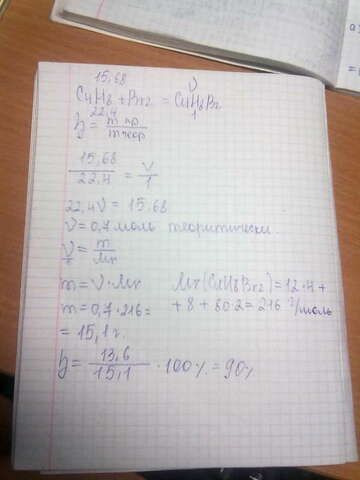 15,68 ν
C4H8 + Br2 = C4H8Br
22,4 1
η = m пр / m теор
15,68 / 22,4 = ν / 1
22,4ν = 15,68
ν = 0,7 моль теоритически
ν = m / Mr
m = ν · Mr Mr(C4H8Br2) = 12·4 +
m = 0,7 · 216 = + 8 + 80·2 = 216 г/моль
= 15,1 г.
η = 13,6 / 15,1 · 100% = 90%